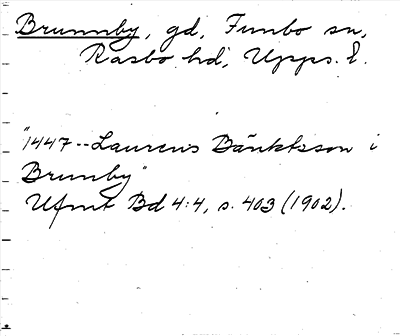 Brunnby, gd, Funbo sn,
Rasbo hd, Upps. l.
"1447 -- Laurens Bänktsson i
Brunby"
Ufmt Bd 4:4, s. 403 (1902).